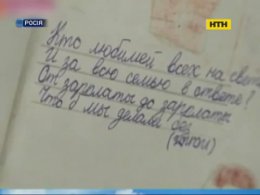 РОСІЯ
НТН
Кто любимей всех на свете
И за всю семью в ответе?
От зарплаты до зарплаты
Что б мы делали без